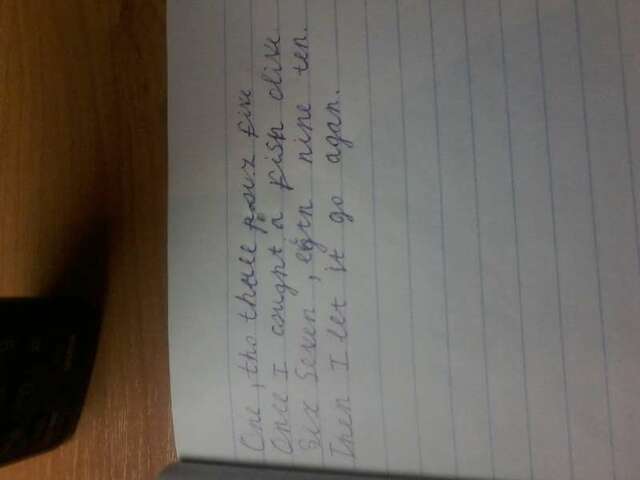 One, tho three four five
Once I caught a fish alive
Six Seven, eigth nine ten.
Then I let it go agan.